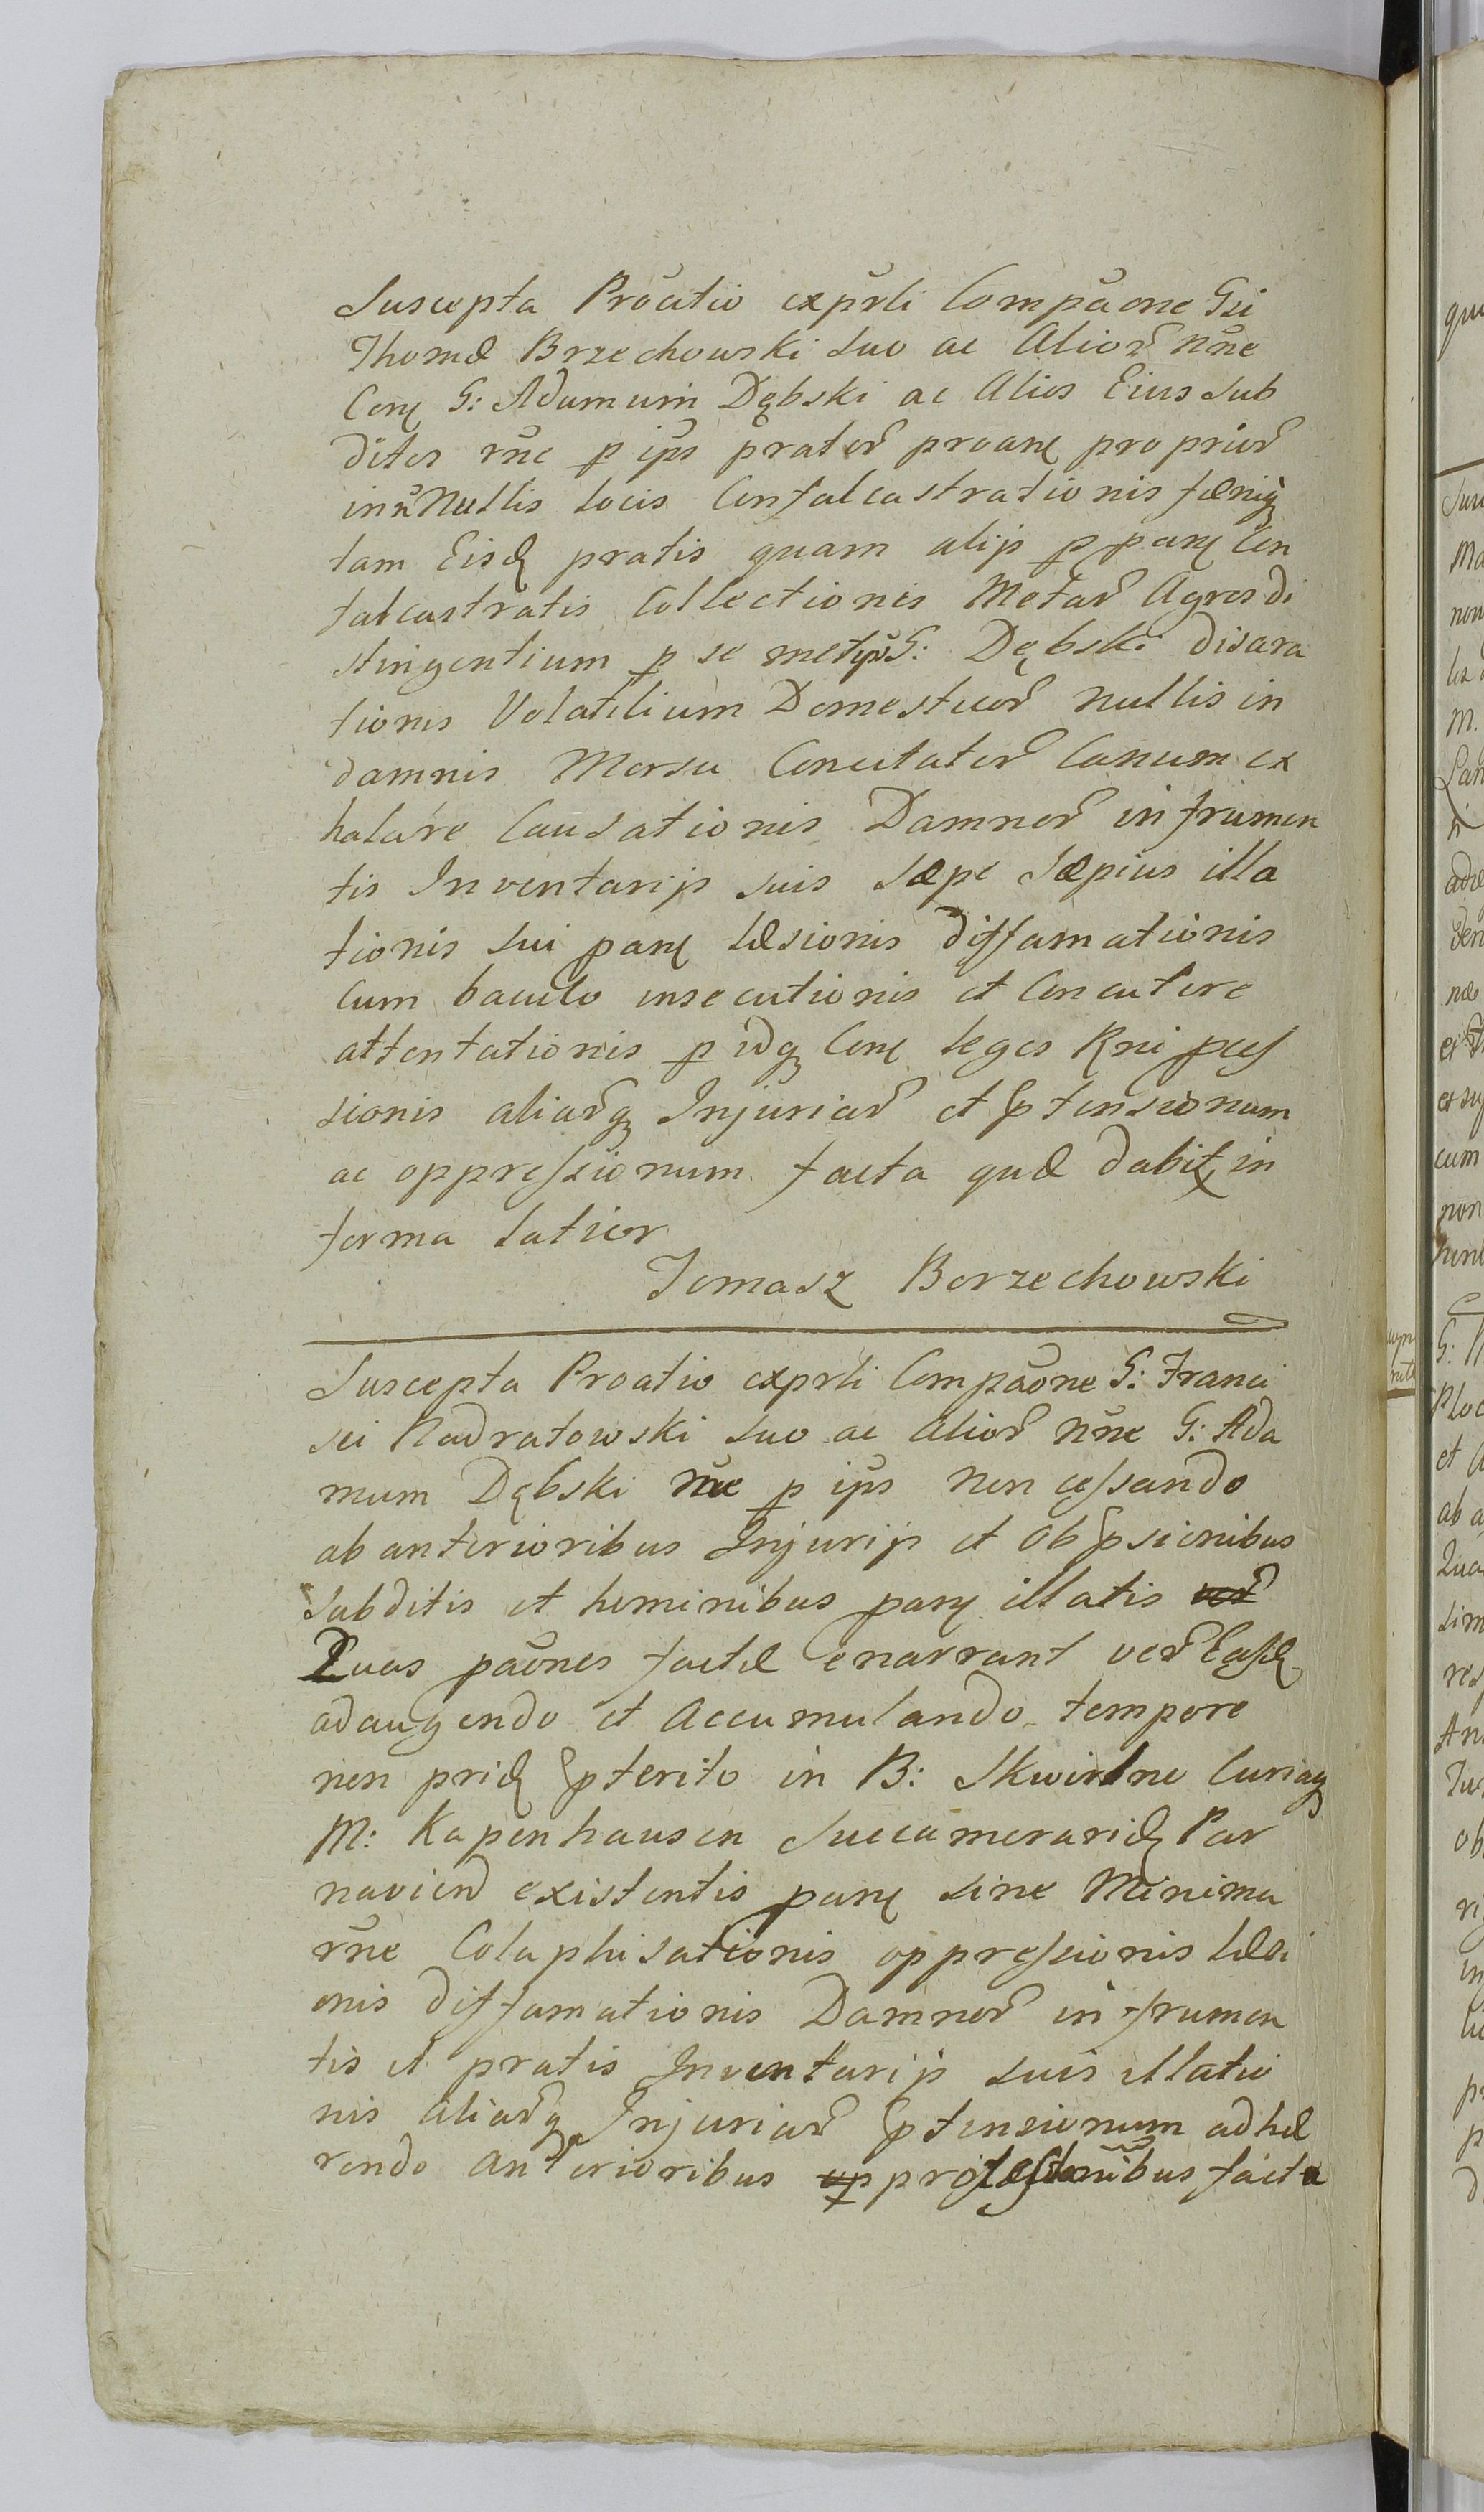 Suscepta Proātio exprli Compāone Gsi
Thomæ Brzechowski suo ac Alior̃ nñe
Conṭ G: Adamum Dębski ac Alios Eius Sub
ditos rñe p ips̃ prator̃ proanṭ proprior̃
in nõNullis locis Confalcastrationis fœniq̨
tam Eisd̨ pratis quam alijs p parṭ Con
falcastratis Collectionis Metar̃ Agros di
stingentium p se metip̃s G: Dębski disara
tionis Volatilium Domesticor̃ nullis in
damnis Morsu Concitator̃ Canum ex
halare Causationis Damnor̃ in frumen
tis Inventarijs suis sæpe sæpius illa
tionis sui parṭ læsionis diffamationis
Cum baculo insecutionis et Concutere
attentationis p idq̨ Conṭ leges Rni pces
sionis aliar̃q̨ Injuriar̃ et Ptensionum
ac oppressionum facta quæ dabitṛ in
forma latior
Tomasz Borzechowski
Suscepta Proatio exprli Compāone G: Franci
sci Nadratowski suo ac alior̃ nñe G: Ada
mum Dębski rñe p ips̃ non cessando
ab anterioribus Injurijs et Obpsionibus
subditis et hominibus parṭ illatis ver̃
Quas pāones factæ enarrant ver̃ Easd̨
adaugendo et Accumulando tempore
non prid̨ Pterito in B: Skwirlno Curiaq̨
M: Kapenhausen Succamerarid̨ Par
navien̄ existentis parṭ sine Minima
rñe Colaphisationis oppressionis læsi
onis diffamationis Damnor̃ in frumen
tis et pratis Inventarijs suis illatio
nis Aliar̃q̨ Injuriar̃ Ptensionum adhæ
rendo Anterioribus protestnibus facta